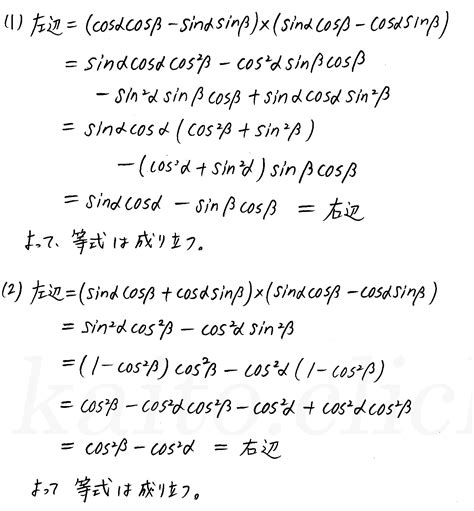 (1) 左辺 = (cosαcosβ − sinαsinβ)×(sinαcosβ − cosαsinβ)
= sinαcosαcos²β − cos²αsinβcosβ
− sin²αsinβcosβ + sinαcosαsin²β
= sinαcosα(cos²β + sin²β)
− (cos²α + sin²α)sinβcosβ
= sinαcosα − sinβcosβ = 右辺
よって、等式は成り立つ。
(2) 左辺 = (sinαcosβ + cosαsinβ)×(sinαcosβ − cosαsinβ)
= sin²αcos²β − cos²αsin²β
= (1 − cos²β)cos²β − cos²α(1 − cos²β)
= cos²β − cos²αcos²β − cos²α + cos²αcos²β
= cos²β − cos²α = 右辺
よって 等式は成り立つ。
kaito.clic